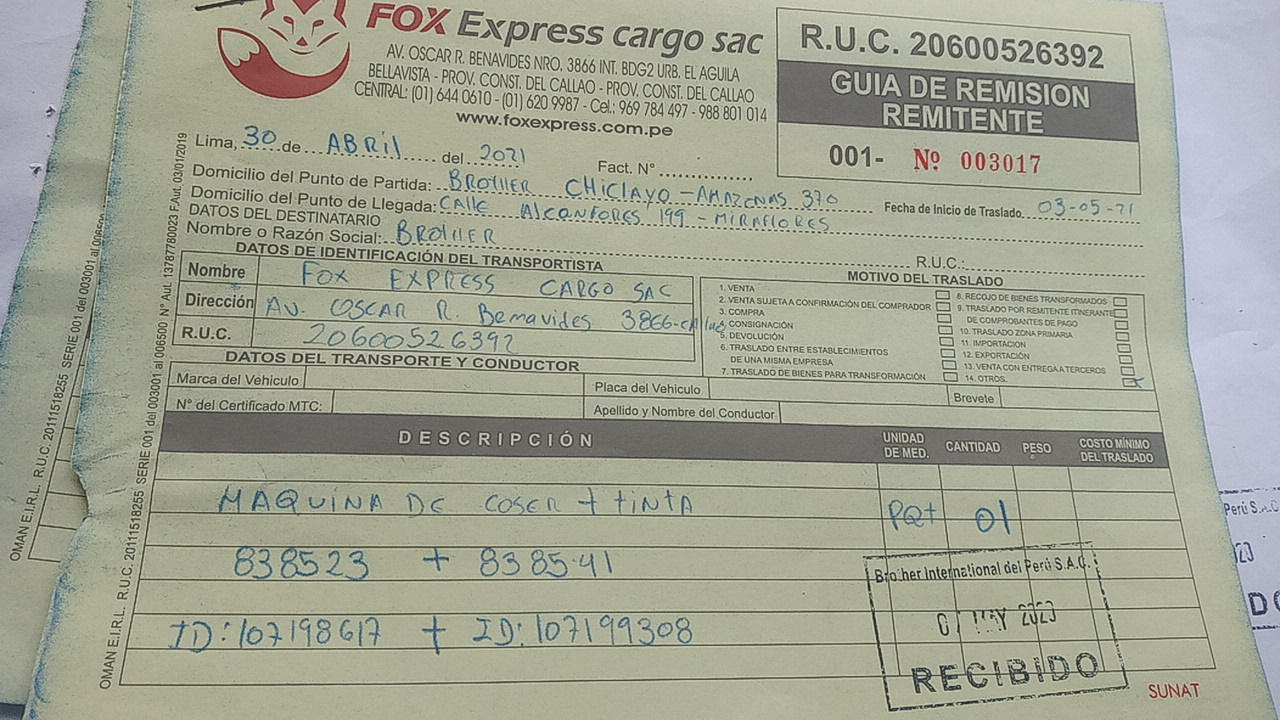 FOX Express cargo sac
AV. OSCAR R. BENAVIDES NRO. 3866 INT. BDG2 URB. EL AGUILA
BELLAVISTA - PROV. CONST. DEL CALLAO - PROV. CONST. DEL CALLAO
CENTRAL: (01) 644 0610 - (01) 620 9987 - Cel.: 969 784 497 - 988 801 014
www.foxexpress.com.pe
R.U.C. 20600526392
GUIA DE REMISION
REMITENTE
001- Nº 003017
Lima, 30 de ABRIL del 2021 Fact. N°
Domicilio del Punto de Partida: BROTHER CHICLAYO - AMAZONAS 370
Fecha de Inicio de Traslado 03-05-21
Domicilio del Punto de Llegada: CALLE Alcanfores 199 - MIRAFLORES
DATOS DEL DESTINATARIO
Nombre o Razón Social: BROTHER R.U.C.:
DATOS DE IDENTIFICACIÓN DEL TRANSPORTISTA
Nombre FOX EXPRESS CARGO SAC
Dirección AV. OSCAR R. Bemavides 3866-callao
R.U.C. 20600526392
MOTIVO DEL TRASLADO
1. VENTA
2. VENTA SUJETA A CONFIRMACIÓN DEL COMPRADOR
3. COMPRA
CONSIGNACIÓN
5. DEVOLUCIÓN
6. TRASLADO ENTRE ESTABLECIMIENTOS
DE UNA MISMA EMPRESA
7. TRASLADO DE BIENES PARA TRANSFORMACIÓN
8. RECOJO DE BIENES TRANSFORMADOS
9. TRASLADO POR REMITENTE ITINERANTE
DE COMPROBANTES DE PAGO
10. TRASLADO ZONA PRIMARIA
11. IMPORTACION
12. EXPORTACIÓN
13. VENTA CON ENTREGA A TERCEROS
14. OTROS. X
DATOS DEL TRANSPORTE Y CONDUCTOR
Marca del Vehiculo Placa del Vehículo Brevete
N° del Certificado MTC: Apellido y Nombre del Conductor
DESCRIPCIÓN UNIDAD DE MED. CANTIDAD PESO COSTO MÍNIMO DEL TRASLADO
MAQUINA DE COSER + tinta PQt 01
838523 + 8385.41
ID:107198617 + ID:107199308
Brother International del Perú S.A.C.
MAY 2023
RECIBIDO
SUNAT
OMAN E.I.R.L. R.U.C. 20111518255 SERIE 001 del 003001 al 006500 N° Aut. 13787780023 F/Aut. 03/01/2019
OMAN E.I.R.L. R.U.C. 20111518255 SERIE 001 del 003001 al
Perú S.A.C